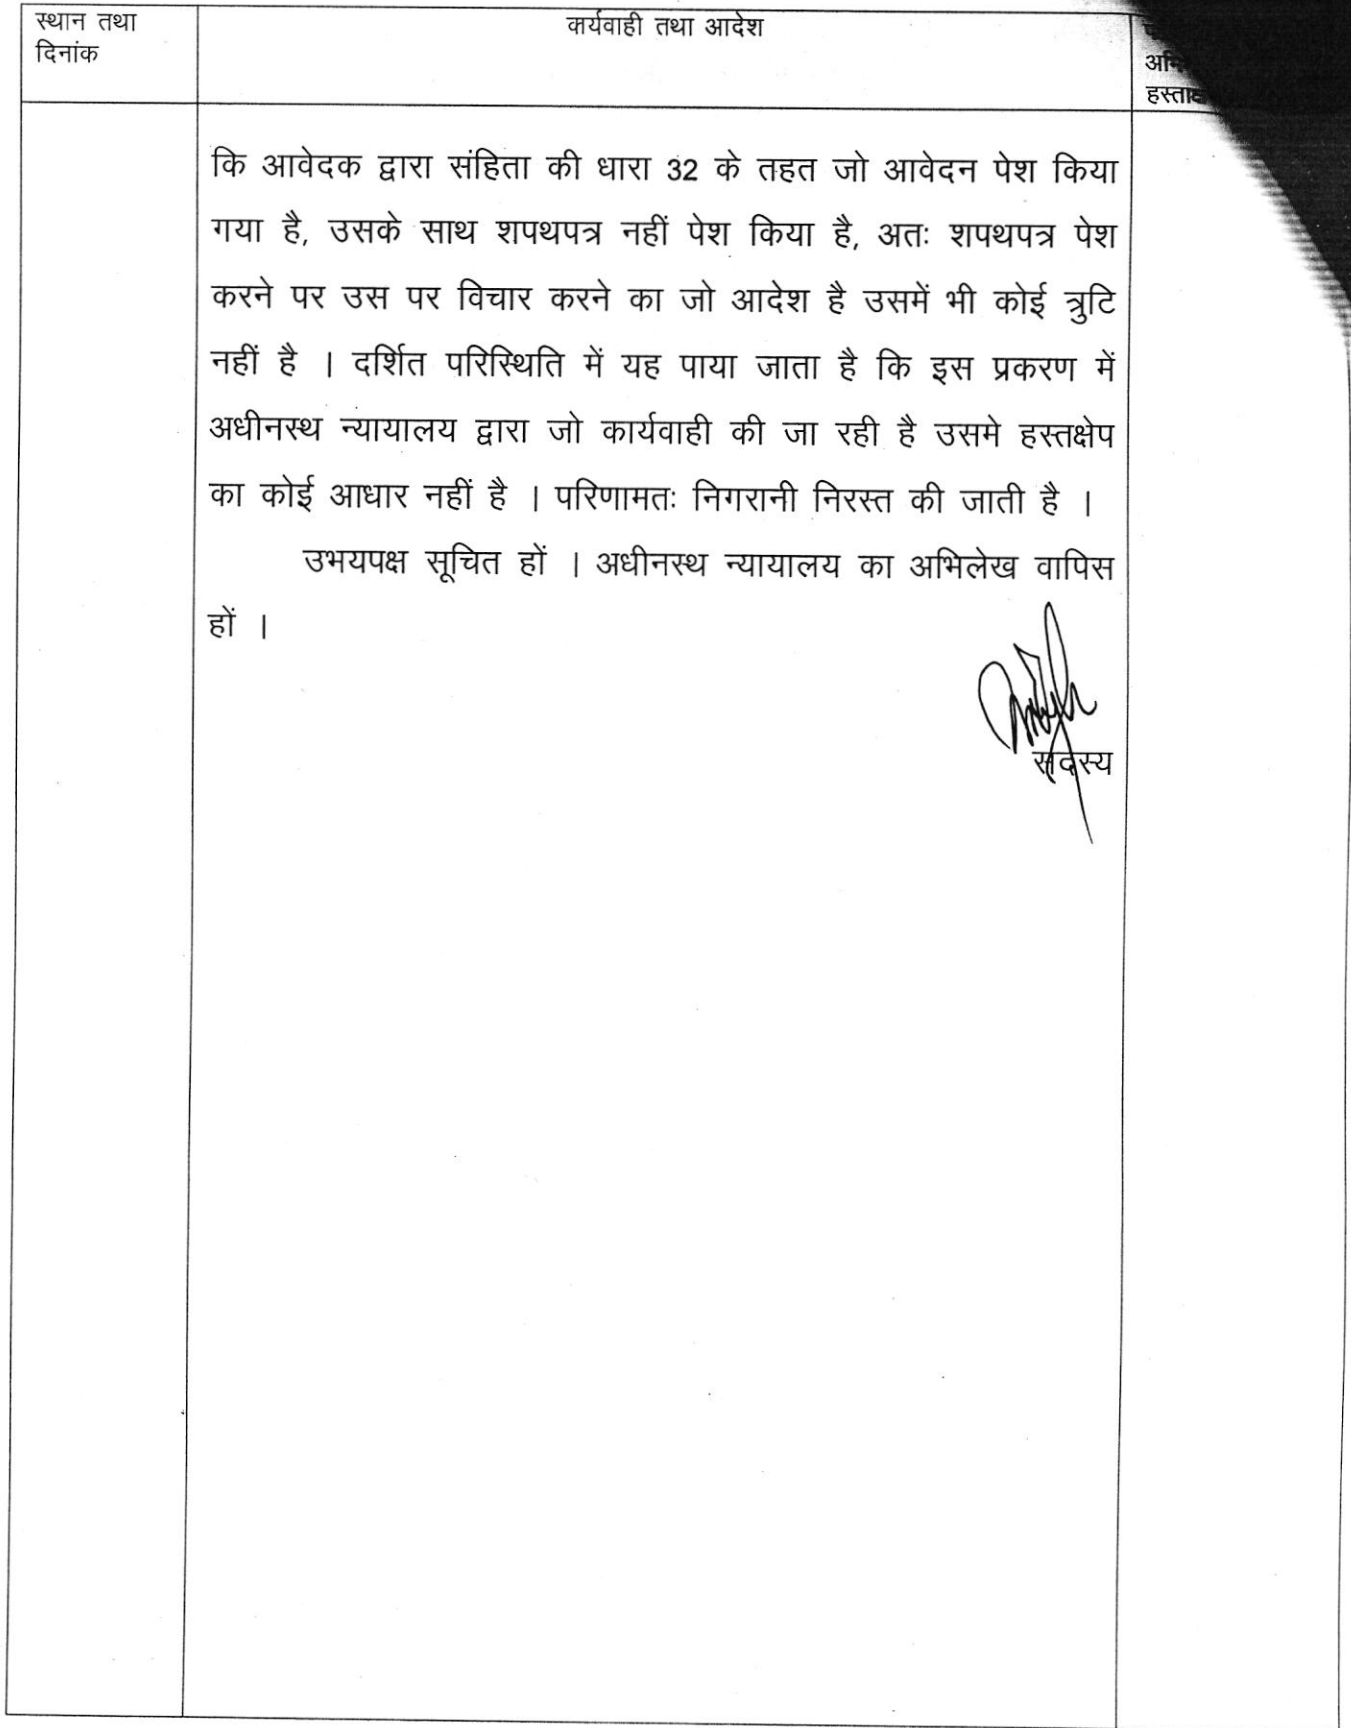 स्थान तथा
दिनांक
कार्यवाही तथा आदेश
कि आवेदक द्वारा संहिता की धारा 32 के तहत जो आवेदन पेश किया
गया है, उसके साथ शपथपत्र नहीं पेश किया है, अतः शपथपत्र पेश
करने पर उस पर विचार करने का जो आदेश है उसमें भी कोई त्रुटि
नहीं है । दर्शित परिस्थिति में यह पाया जाता है कि इस प्रकरण में
अधीनस्थ न्यायालय द्वारा जो कार्यवाही की जा रही है उसमे हस्तक्षेप
का कोई आधार नहीं है । परिणामतः निगरानी निरस्त की जाती है ।
उभयपक्ष सूचित हों । अधीनस्थ न्यायालय का अभिलेख वापिस
हों ।
सदस्य